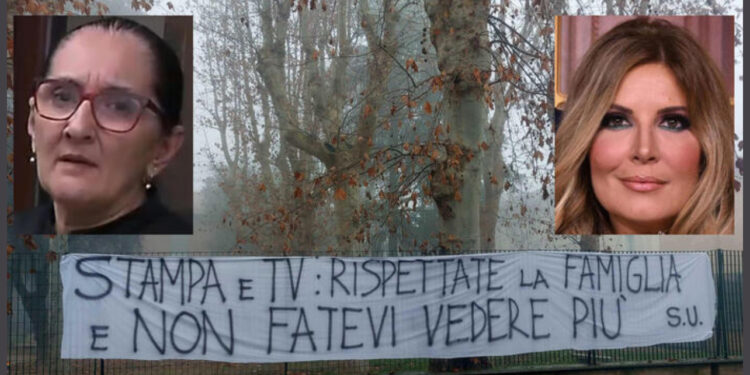 STAMPA E TV: RISPETTATE LA FAMIGLIA
E NON FATEVI VEDERE PIÙ S.U.